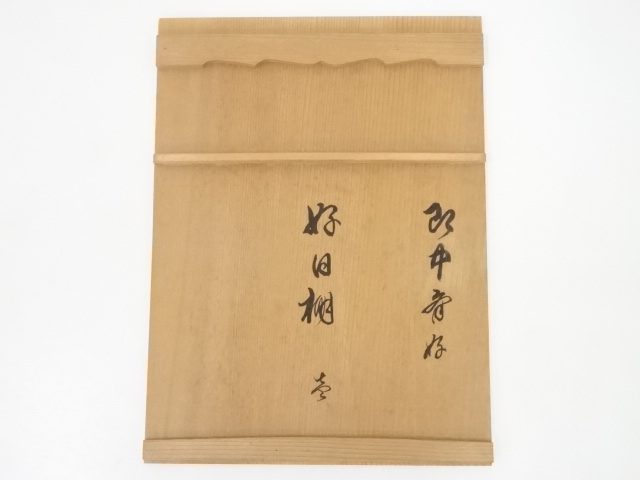 即中斎好
好日棚
壱